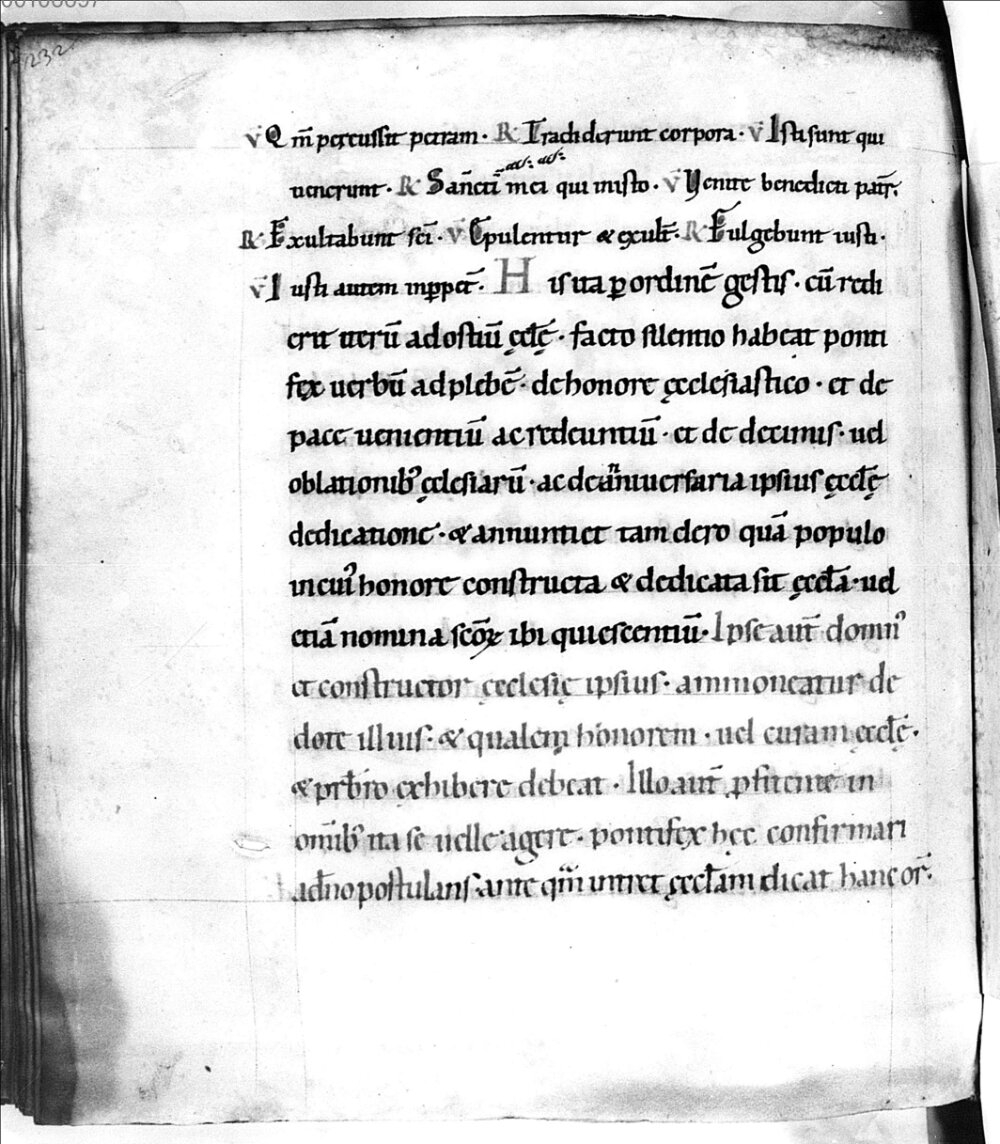 232
V Qm̄ percussit petram · R Tradiderunt corpora · V Isti sunt qui
uenerunt · R Sanc̄ti mei qui in isto · V Venite benedicti patr̄
R Exultabunt sc̄i · V Epulentur & exult̄ · R Fulgebunt iusti ·
V Iusti autem in ꝑpet̄ · His ita ꝑ ordinē gestis · cū redi
erit iterū ad ostiū ęcłę · facto silentio habeat ponti
fex uerbū ad plebē · de honore ęcclesiastico · et de
pace uenientiū ac redeuntiū · et de decimis · uel
oblationibꝰ ęclesiarū · ac de anniuersaria ipsius ęccłę
dedicatione · & annuntiet tam clero quā populo
in cuiꝰ honore constructa & dedicata sit ęccła · uel
etiā nomina scōꝝ ibi quiescentiū · Ipse aut̄ domnꝰ
et constructor ęcclesię ipsius · ammoneatur de
dote illius · & qualem honorem · uel curam ęccłę ·
& pr̄bro exhibere debeat · Illo aut̄ ꝓfitente in
omībꝰ ita se uelle agere · pontifex hęc confirmari
a dn̄o postulans · ante qm̄ intret ęccłam dicat hanc or̄ ·